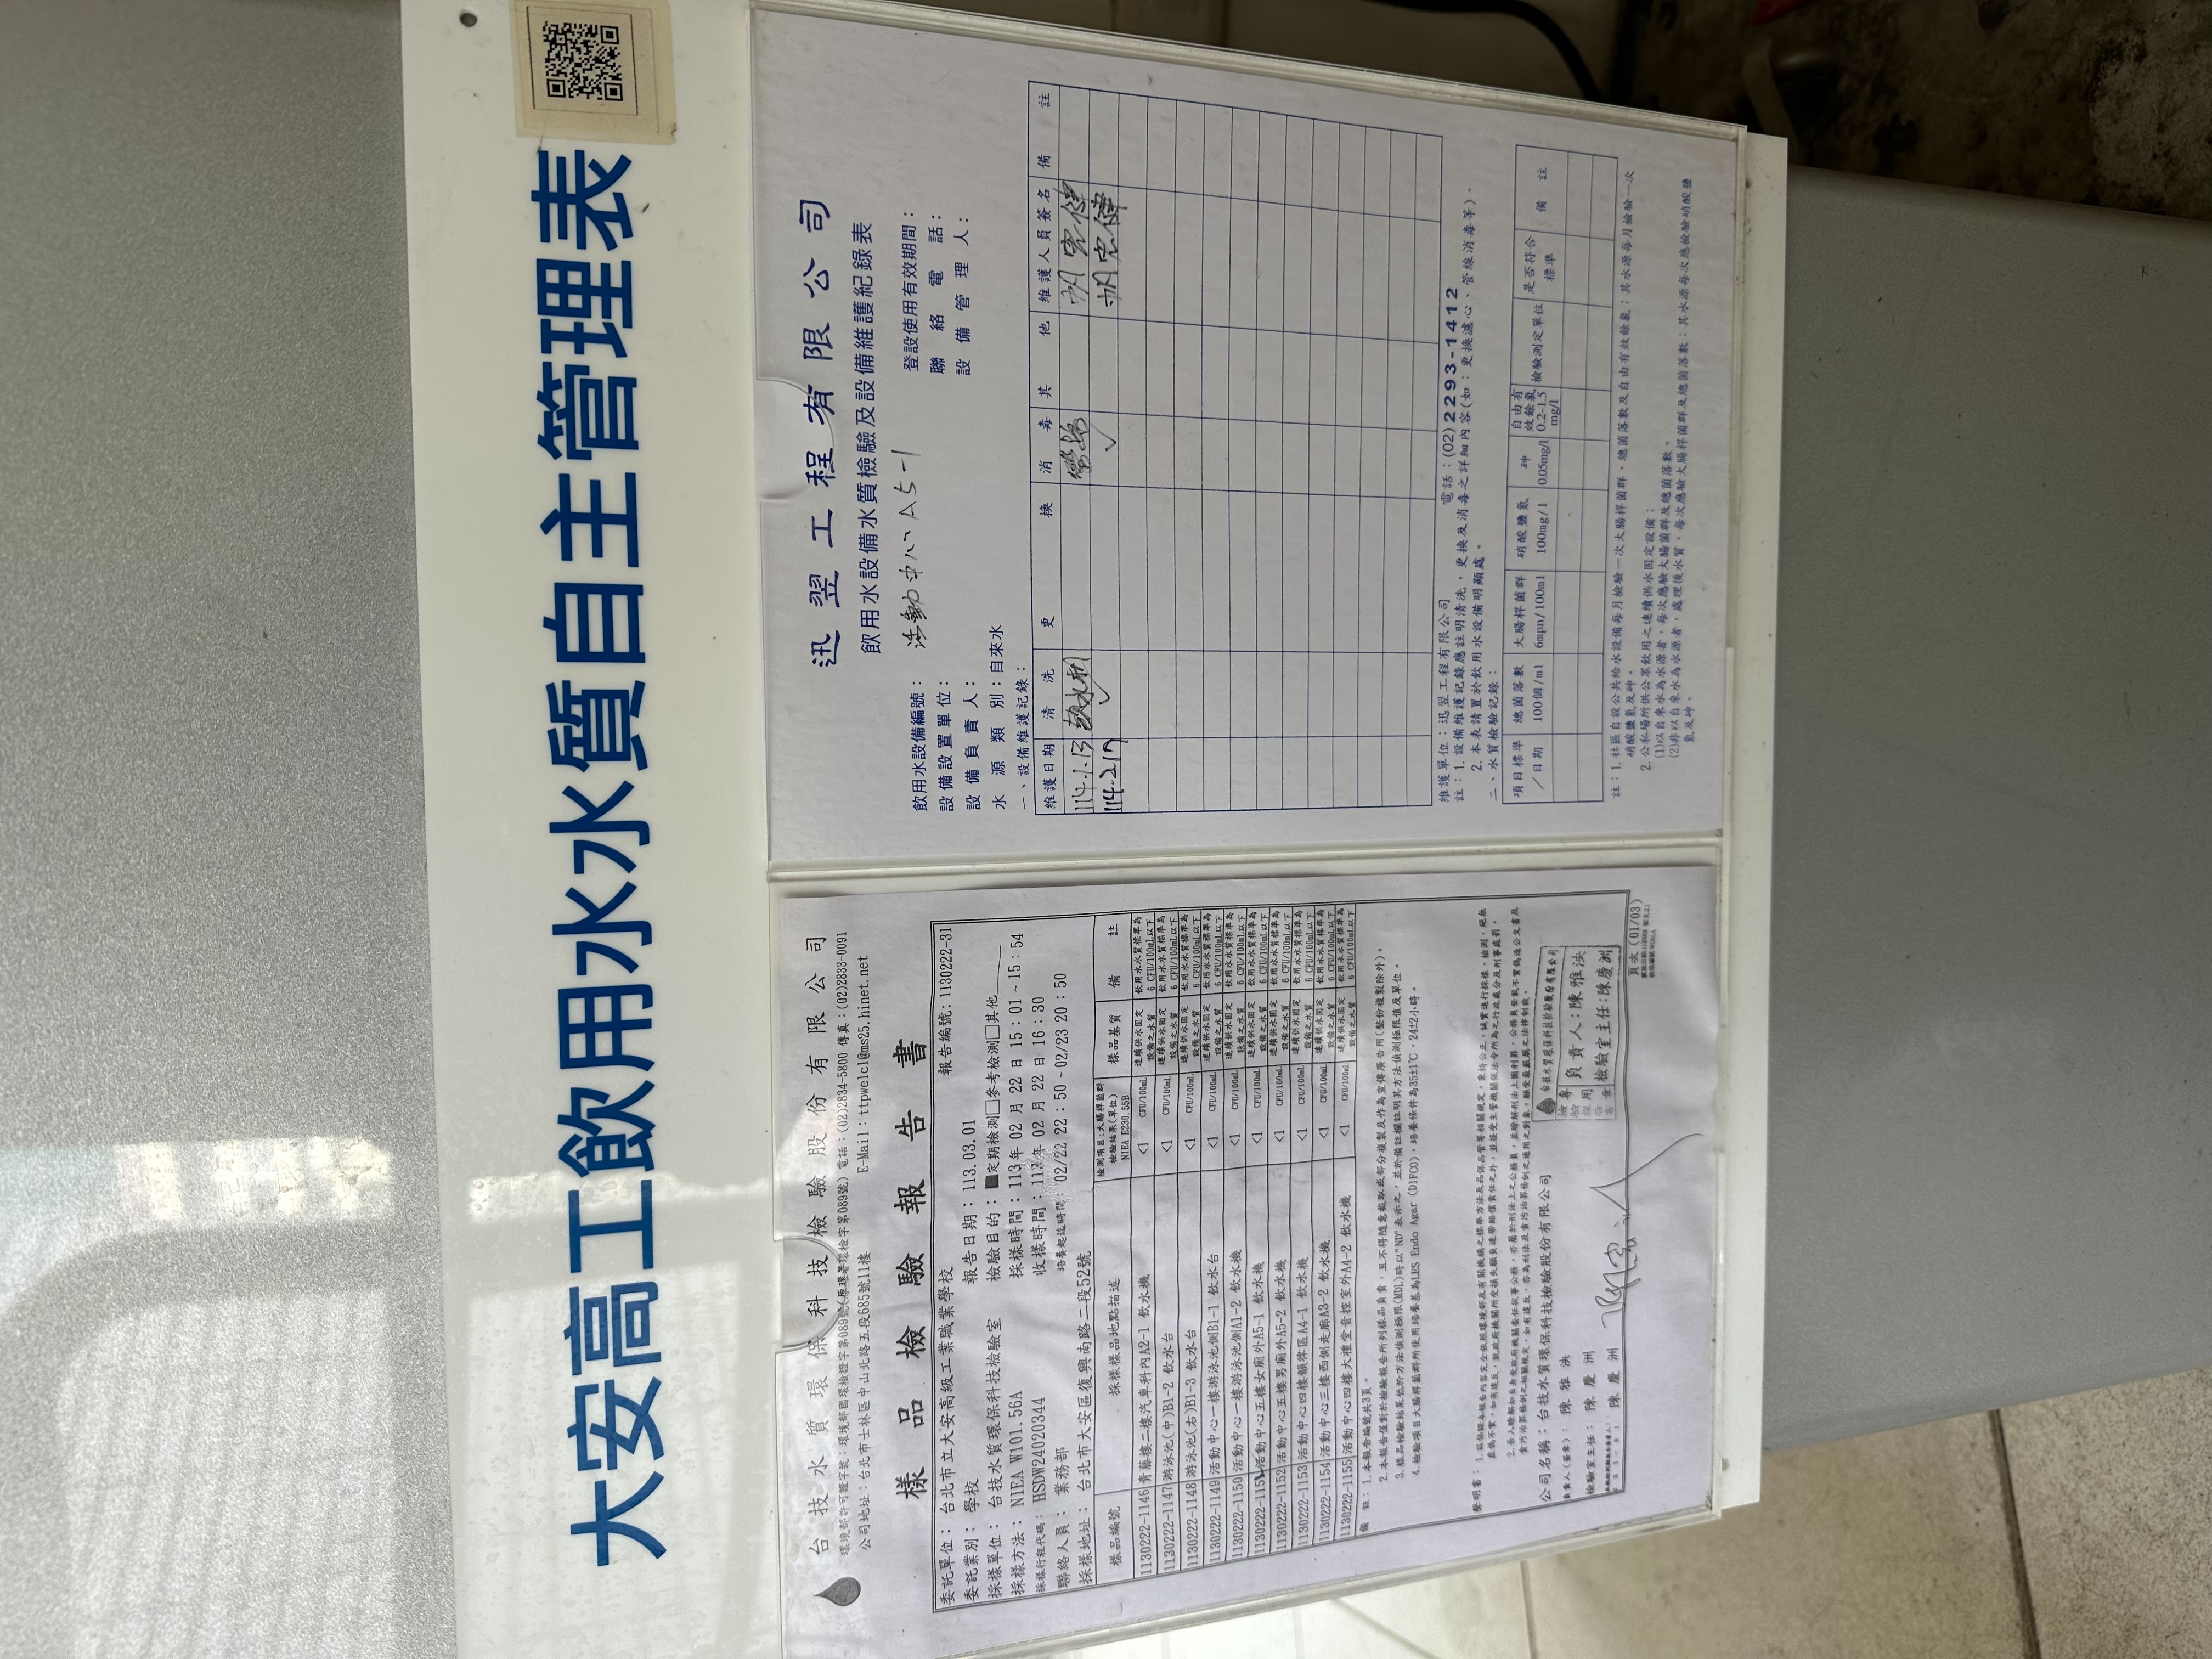 大安高工飲用水水質自主管理表
台技水質環保科技檢驗股份有限公司
公司地址：台北市士林區中山北路五段685號11樓
電話：(02)2834-5800 傳真：(02)2833-0091
E-Mail：ttpwelcl@ms25.hinet.net
樣品檢驗報告書
委託單位：台北市立大安高級工業職業學校
報告編號：1130222-31
委託業別：學校
報告日期：113.03.01
採樣單位：台技水質環保科技檢驗室
檢驗目的：■定期檢測□參考檢測□其他
採樣方法：NIEA W101.56A
採樣時間：113年 02 月 22 日 15：01 ~ 15：54
採樣行程代碼：HSDW24020344
收樣時間：113年 02 月 22 日 16：30
聯絡人員：業務部
培養起迄時間：02/22 22：50 ~ 02/23 20：50
採樣地址：台北市大安區復興南路二段52號
樣品編號 採樣樣品地點描述 檢測項目：大腸桿菌群 檢驗結果(單位) NIEA E230.55B 樣品基質 備註
1130222-1146 青藤樓二樓汽車科內A2-1 飲水機 <1 CFU/100mL 連續供水固定設備之水質 飲用水水質標準為6 CFU/100mL以下
1130222-1147 游泳池(中)B1-2 飲水台 <1 CFU/100mL 連續供水固定設備之水質 飲用水水質標準為6 CFU/100mL以下
1130222-1148 游泳池(右)B1-3 飲水台 <1 CFU/100mL 連續供水固定設備之水質 飲用水水質標準為6 CFU/100mL以下
1130222-1149 活動中心一樓游泳池側B1-1 飲水台 <1 CFU/100mL 連續供水固定設備之水質 飲用水水質標準為6 CFU/100mL以下
1130222-1150 活動中心一樓游泳池側A1-2 飲水機 <1 CFU/100mL 連續供水固定設備之水質 飲用水水質標準為6 CFU/100mL以下
1130222-1151 活動中心五樓女廁外A5-1 飲水機 <1 CFU/100mL 連續供水固定設備之水質 飲用水水質標準為6 CFU/100mL以下
1130222-1152 活動中心五樓男廁外A5-2 飲水機 <1 CFU/100mL 連續供水固定設備之水質 飲用水水質標準為6 CFU/100mL以下
1130222-1153 活動中心四樓韻律區A4-1 飲水機 <1 CFU/100mL 連續供水固定設備之水質 飲用水水質標準為6 CFU/100mL以下
1130222-1154 活動中心三樓西側走廊A3-2 飲水機 <1 CFU/100mL 連續供水固定設備之水質 飲用水水質標準為6 CFU/100mL以下
1130222-1155 活動中心四樓大禮堂音控室外A4-2 飲水機 <1 CFU/100mL 連續供水固定設備之水質 飲用水水質標準為6 CFU/100mL以下
備註：1.本報告編號共3頁。
2.本報告僅對於檢驗報告所列樣品負責，且不得隨意截取或部分複製及作為宣傳廣告用(整份複製除外)。
3.樣品檢驗結果低於方法偵測極限(MDL)時以"ND"表示之，並於備註欄註明其方法偵測極限值及單位。
4.檢驗項目大腸桿菌群所使用培養基為LES Endo Agar (DIFCO)，培養條件為35±1℃、24±2小時。
聲明書：
公司名稱：台技水質環保科技檢驗股份有限公司
負責人(簽章)：陳雅泱
檢驗室主任：陳慶洲
陳慶洲
負責人：陳雅泱
檢驗室主任：陳慶洲
頁次 (01/03)
迅翌工程有限公司
飲用水設備水質檢驗及設備維護紀錄表
飲用水設備編號：活動中心 A5-1
登設使用有效期間：
設備設置單位：
聯絡電話：
設備負責人：
設備管理人：
水源類別：自來水
一、設備維護記錄：
維護日期 清洗 更換 消毒 其他 維護人員簽名 備註
114-1-13
114-2-17 ✓ ✓
維護單位：迅翌工程有限公司 電話：(02)2293-1412
註：1.設備維護記錄應註明清洗，更換及消毒之詳細內容(如：更換濾心、管線消毒等)。
2.本表請置於飲用水設備明顯處。
二、水質檢驗記錄：
項目標準／日期 總菌落數 100個/ml 大腸桿菌群 6mpn/100ml 硝酸鹽氮 100mg/l 砷 0.05mg/l 自由有效餘氯 0.2-1.5 mg/l 檢驗測定單位 是否符合標準 備註
註：1.社區自設公共給水設備每月檢驗一次大腸桿菌群、總菌落數及自由有效餘氯；其水源每月檢驗一次
硝酸鹽氮及砷。
2.公私場所供公眾飲用之連續供水固定設備：
(1)以自來水為水源者，每次應驗大腸菌群及總菌落數。
(2)非以自來水為水源者，處理後水質，每次應驗大腸桿菌群及總菌落數；其水源每次應檢驗硝酸鹽
氮及砷。